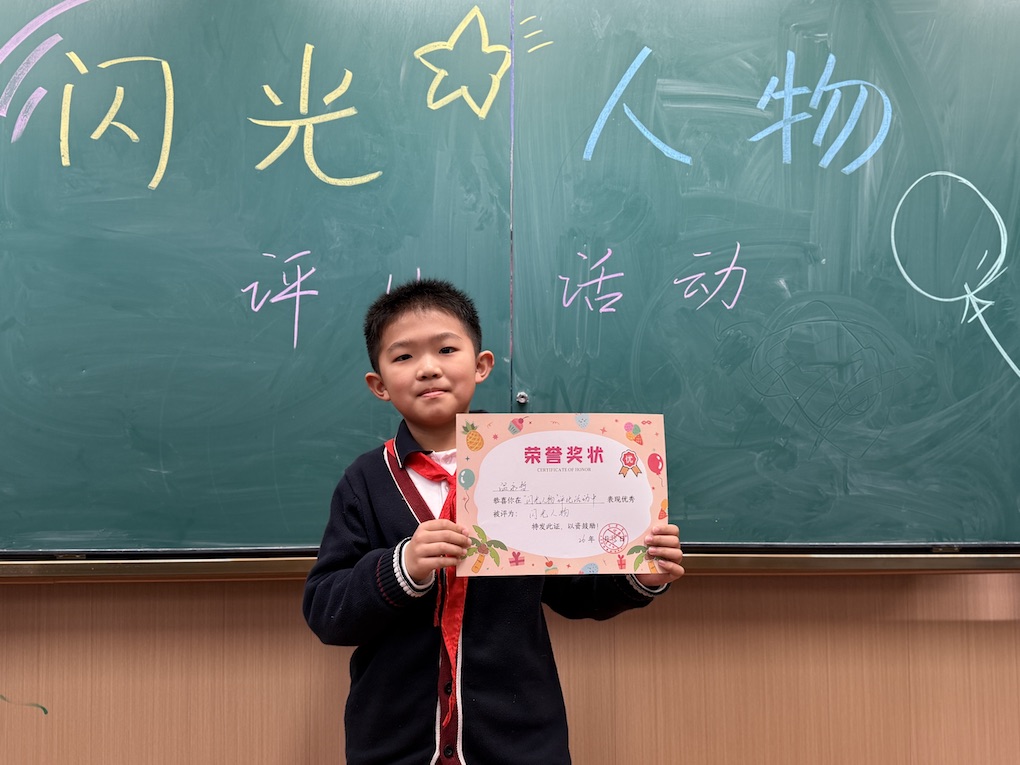 闪光人物
评比活动
荣誉奖状
CERTIFICATE OF HONOR
优
恭喜你在"闪光人物"评比活动中 表现优秀
被评为： 闪光人物
特发此证，以资鼓励！
26年